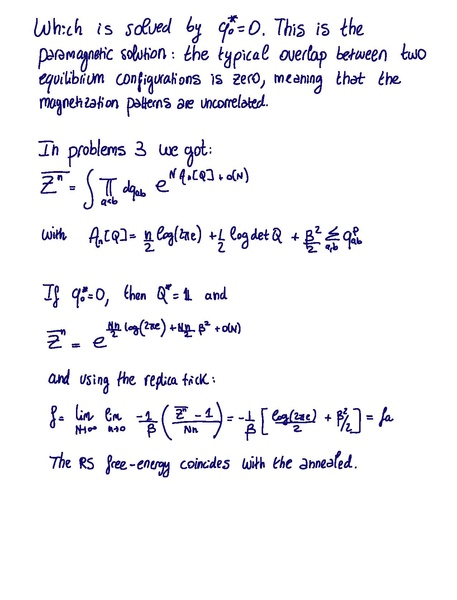 Which is solved by q₀*=0. This is the
paramagnetic solution: the typical overlap between two
equilibrium configurations is zero, meaning that the
magnetization patterns are uncorrelated.
In problems 3 we got:
\overline{Z^n} = ∫ ∏_{a<b} dq_{ab} e^{N A_n[Q] + o(N)}
with A_n[Q] = n/2 log(2πe) + 1/2 log det Q + β²/2 Σ_{a,b} q_{ab}^p
If q₀*=0, then Q*=1 and
\overline{Z^n} = e^{Nn/2 log(2πe) + Nn/2 β² + o(N)}
and using the replica trick:
f = lim_{N→∞} lim_{n→0} -1/β ( (\overline{Z^n} - 1)/(Nn) ) = -1/β [ log(2πe)/2 + β²/2 ] = fa
The RS free-energy coincides with the annealed.